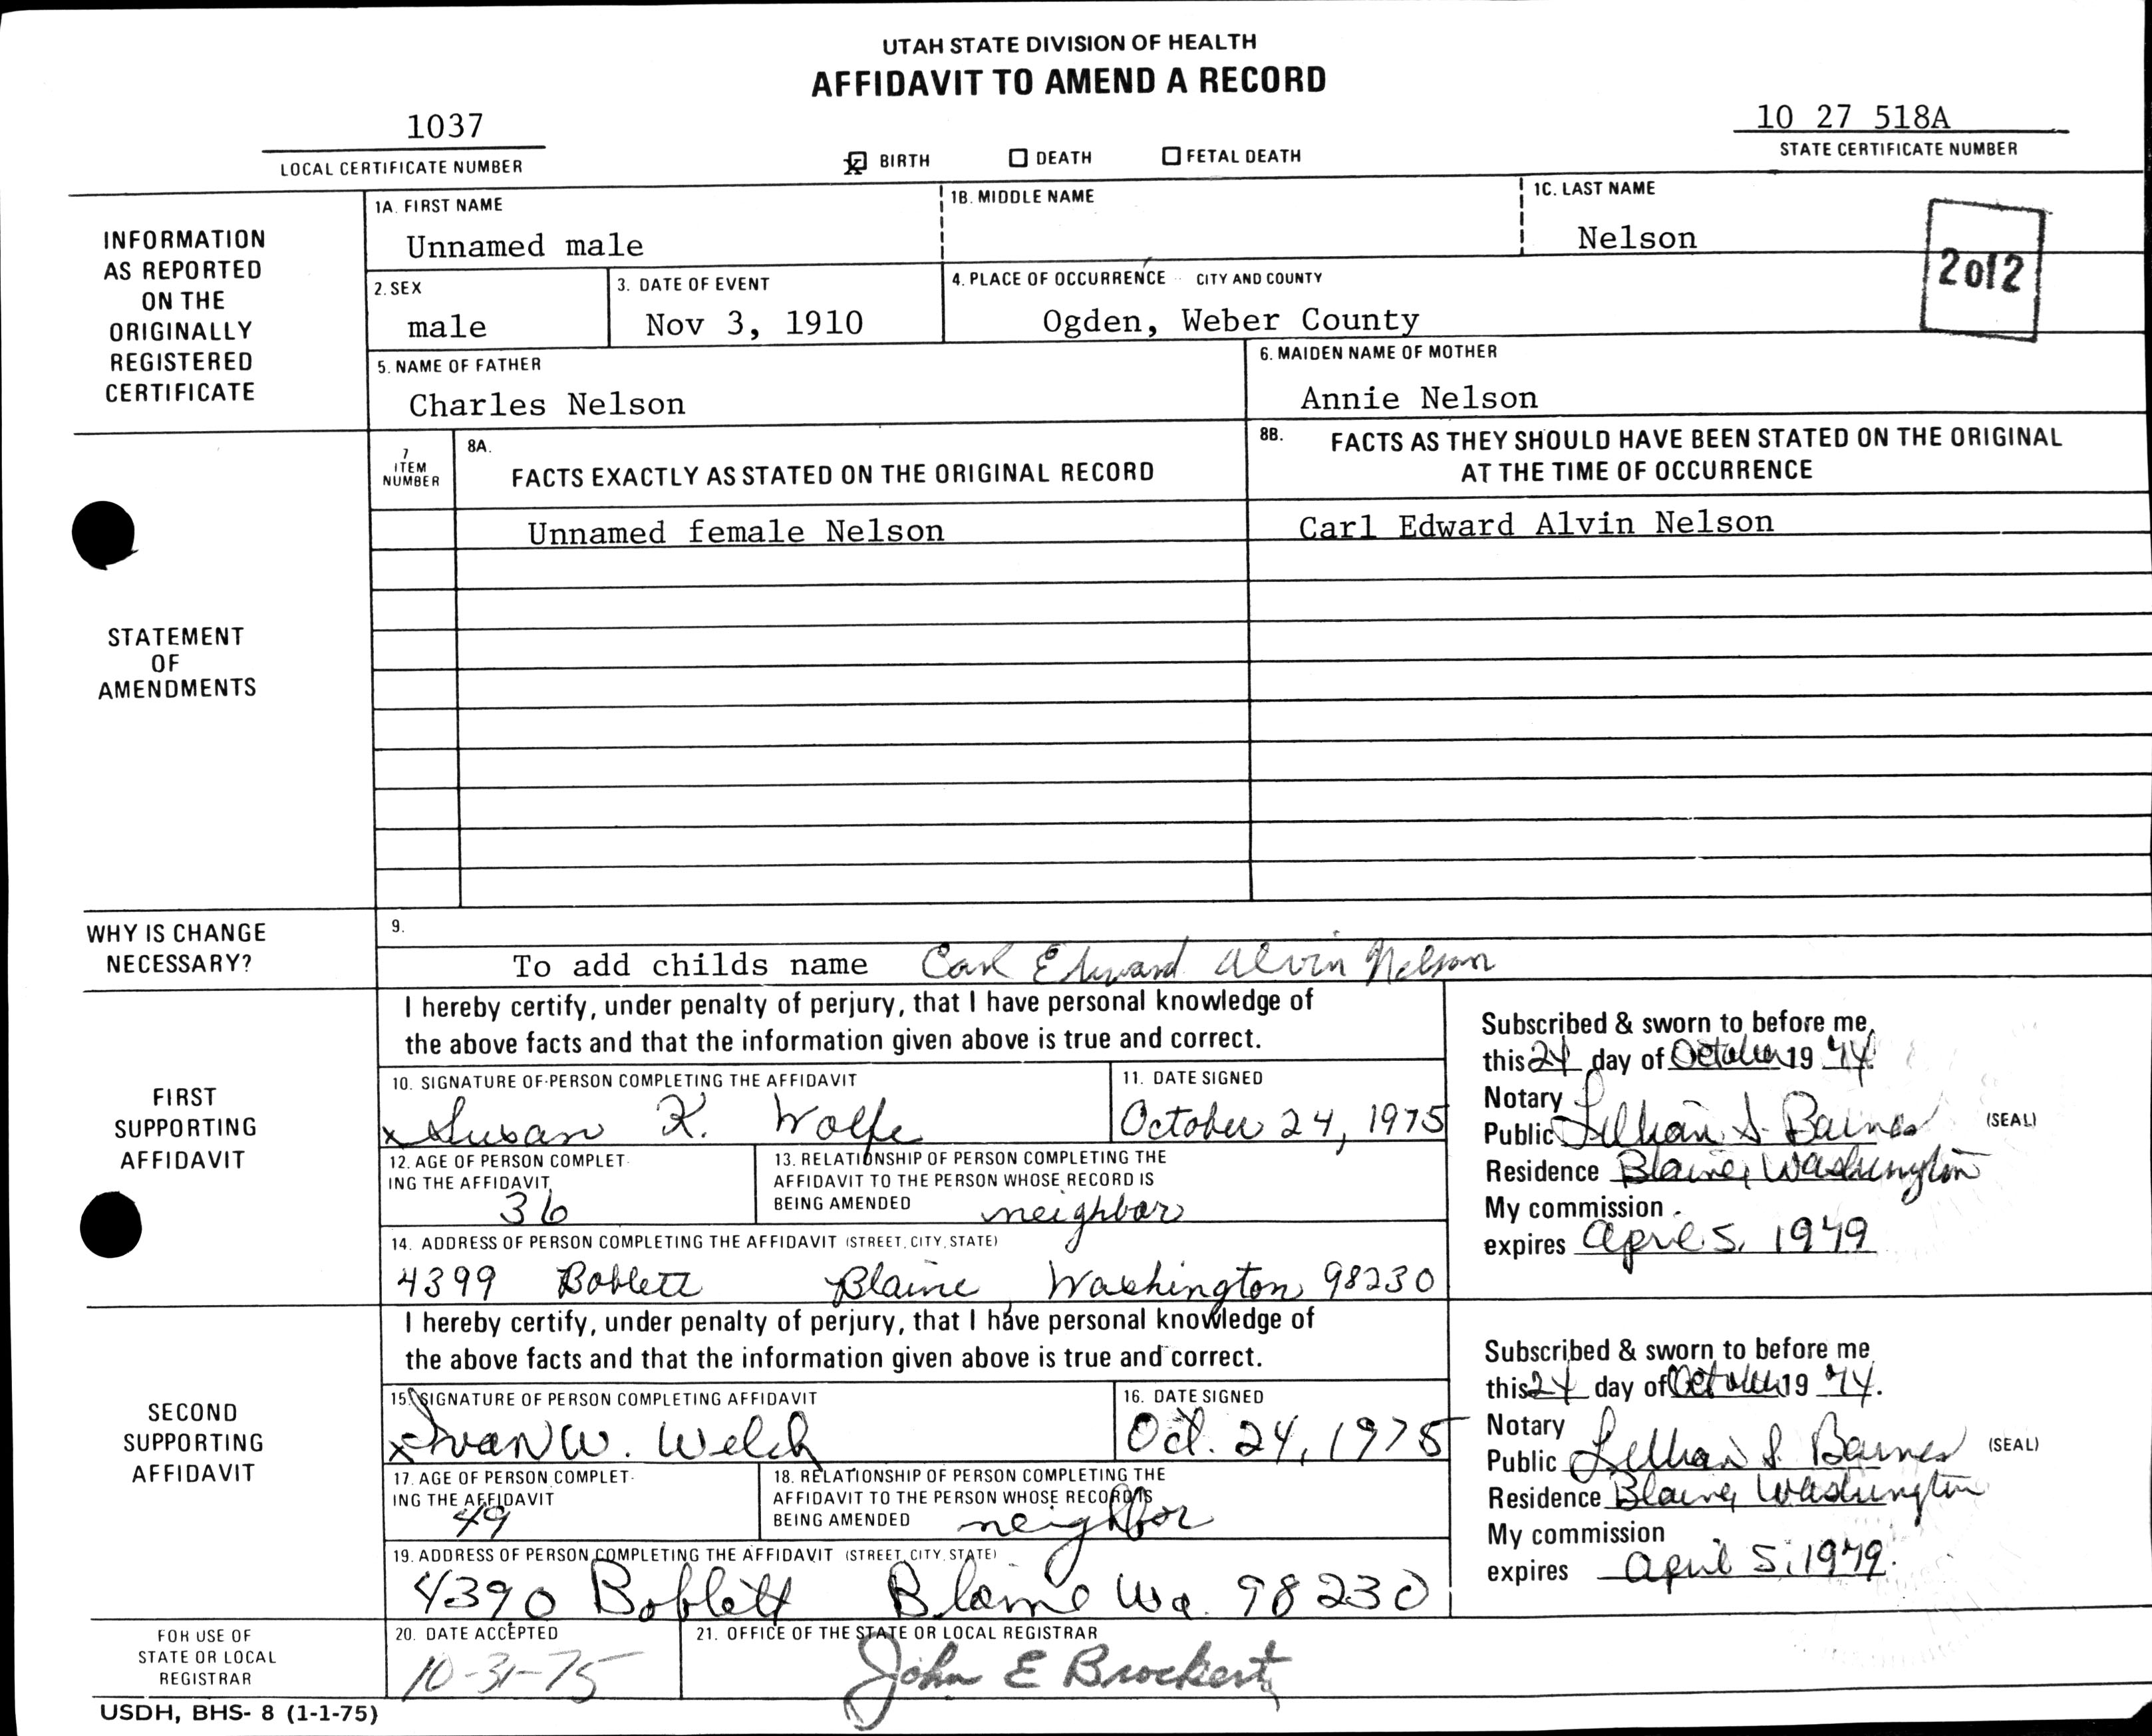 UTAH STATE DIVISION OF HEALTH
AFFIDAVIT TO AMEND A RECORD
1037
LOCAL CERTIFICATE NUMBER
x BIRTH
DEATH
FETAL DEATH
10 27 518A
STATE CERTIFICATE NUMBER
INFORMATION
AS REPORTED
ON THE
ORIGINALLY
REGISTERED
CERTIFICATE
1A. FIRST NAME
Unnamed male
1B. MIDDLE NAME
1C. LAST NAME
Nelson
2 of 2
2. SEX
male
3. DATE OF EVENT
Nov 3, 1910
4. PLACE OF OCCURRENCE CITY AND COUNTY
Ogden, Weber County
5. NAME OF FATHER
Charles Nelson
6. MAIDEN NAME OF MOTHER
Annie Nelson
STATEMENT
OF
AMENDMENTS
7
ITEM
NUMBER
8A.
FACTS EXACTLY AS STATED ON THE ORIGINAL RECORD
8B. FACTS AS THEY SHOULD HAVE BEEN STATED ON THE ORIGINAL
AT THE TIME OF OCCURRENCE
Unnamed female Nelson
Carl Edward Alvin Nelson
WHY IS CHANGE
NECESSARY?
9.
To add childs name Carl Edward Alvin Nelson
FIRST
SUPPORTING
AFFIDAVIT
I hereby certify, under penalty of perjury, that I have personal knowledge of
the above facts and that the information given above is true and correct.
10. SIGNATURE OF PERSON COMPLETING THE AFFIDAVIT
x Susan K. Wolfe
11. DATE SIGNED
October 24, 1975
12. AGE OF PERSON COMPLET-
ING THE AFFIDAVIT
36
13. RELATIONSHIP OF PERSON COMPLETING THE
AFFIDAVIT TO THE PERSON WHOSE RECORD IS
BEING AMENDED neighbor
14. ADDRESS OF PERSON COMPLETING THE AFFIDAVIT (STREET, CITY, STATE)
4399 Boblett Blaine, Washington 98230
Subscribed & sworn to before me,
this 24 day of October 19 74.
Notary
Public Lillian S. Barnes (SEAL)
Residence Blaine, Washington
My commission
expires April 5, 1979
SECOND
SUPPORTING
AFFIDAVIT
I hereby certify, under penalty of perjury, that I have personal knowledge of
the above facts and that the information given above is true and correct.
15. SIGNATURE OF PERSON COMPLETING AFFIDAVIT
x Ivan W. Welch
16. DATE SIGNED
Oct. 24, 1975
17. AGE OF PERSON COMPLET-
ING THE AFFIDAVIT
49
18. RELATIONSHIP OF PERSON COMPLETING THE
AFFIDAVIT TO THE PERSON WHOSE RECORD IS
BEING AMENDED neighbor
19. ADDRESS OF PERSON COMPLETING THE AFFIDAVIT (STREET, CITY, STATE)
4390 Boblett Blaine Wa. 98230
Subscribed & sworn to before me
this 24 day of October 19 74.
Notary
Public Lillian S. Barnes (SEAL)
Residence Blaine, Washington
My commission
expires April 5, 1979.
FOR USE OF
STATE OR LOCAL
REGISTRAR
20. DATE ACCEPTED
10-31-75
21. OFFICE OF THE STATE OR LOCAL REGISTRAR
John E Brockert
USDH, BHS- 8 (1-1-75)